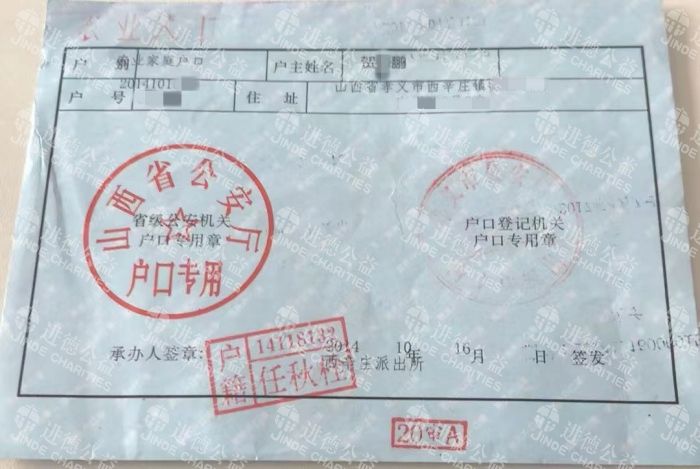 户 别 农业家庭户口 户主姓名 贺 鹏
20141016
户 号 住 址 山西省孝义市西辛庄镇
山西省公安厅
户口专用
省级公安机关
户口专用章
户口登记机关
户口专用章
承办人签章： 2014 年 10 月 16 日 签发
西辛庄派出所
户籍
14118132
任秋
进德公益
JINDE CHARITIES